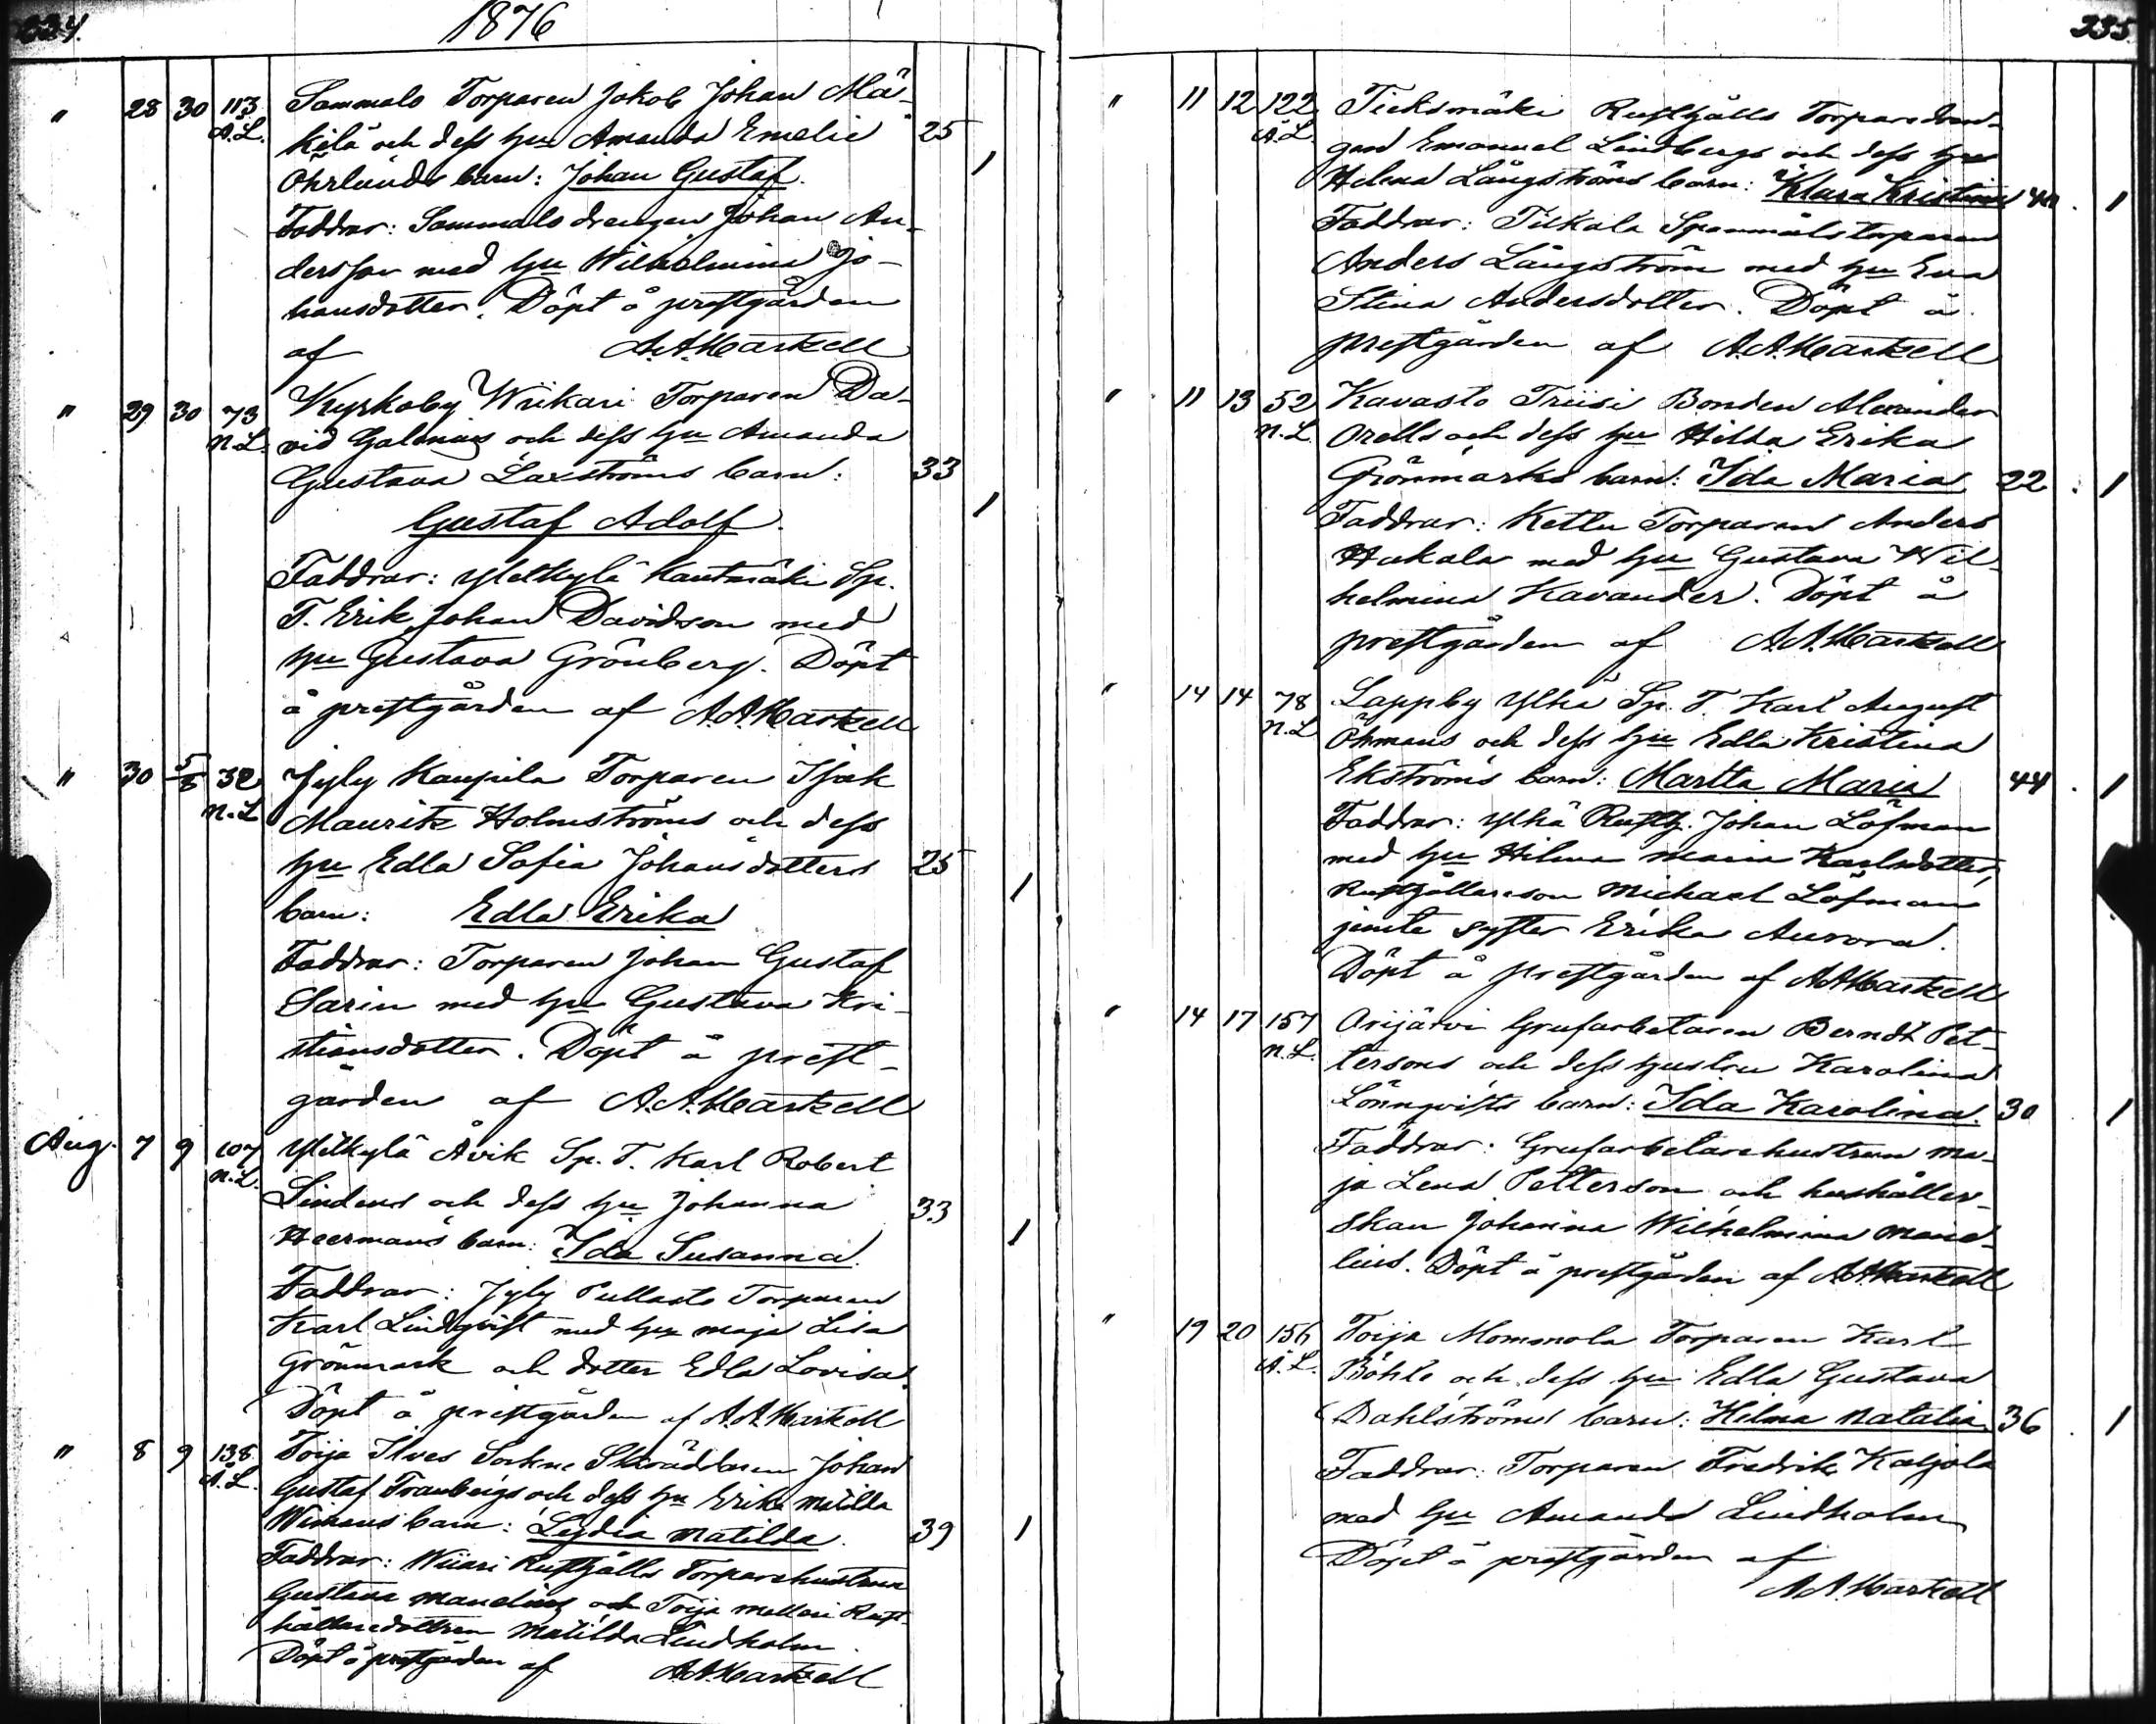 234.
1876
" 28 30 113 Sammalo Torparen Jakob Johan Mä-
Å.L. kilä och dess hu Amanda Emelie 25
Öhrlunds barn: Johan Gustaf. 1
Faddrar: Sammalo drengen Johan An-
dersson med hu Wilhelmina Jo-
hansdotter. Döpt å prestgården
af A.A. Markell
" 29 30 73 Kyrkoby Wiikari Torparen Da-
N.L. vid Galenius och dess hu Amanda
Gustava Laxströms barn: 33
Gustaf Adolf. 1
Faddrar: Yletkylä Kautmäki Sp.
T. Erik Johan Davidson med
hu Gustava Grönberg. Döpt
å prestgården af A.A. Markell
" 30 5/8 32 Jyly Kaupila Torparen Isak
N.L. Mauritz Holmströms och dess
hu Edla Sofia Johansdotters 25
barn: Edla Erika 1
Faddrar: Torparen Johan Gustaf
Sarin med hu Gustava Kri-
stiansdotter. Döpt å prest-
gården af A.A. Markell
Aug. 7 9 107 Yletkylä Åvik Sp. T. Karl Robert
N.L. Lindens och dess hu Johanna 33
Heermans barn: Ida Susanna. 1
Faddrar: Jyly Pullasto Torparen
Karl Lindqvist med hu Maja Lisa
Grönmark och dotter Edla Lovisa.
Döpt å prestgården af A.A. Markell
" 8 9 138 Toija Ilves Sockne Skräddaren Johan
Å.L. Gustaf Tranbergs och dess hu Erika Matilda
Wimans barn: Lydia Matilda. 39 1
Faddrar: Wiiari Rusthålls Torparehustrun
Gustava Mandelius och Toija Mattari Rust-
hållaredottren Matilda Lindholm
Döpt å prestgården af A.A. Markell
235.
" 11 12 122 Tieksmäki Rusthålls Torparedren-
Å.L. gen Emanuel Lindbergs och dess hu
Helena Långströms barn: Klara Kristina 40. 1
Faddrar: Tiikala Spanmålstorparen
Anders Långström med hu Eva
Stina Andersdotter. Döpt å
prestgården af A.A. Markell
" 11 13 52 Kavasto Triisi Bonden Alexander
N.L. Orells och dess hu Hilda Erika
Grönmarks barn: Ida Maria 22. 1
Faddrar: Kettu Torparen Anders
Hukala med hu Gustava Wil-
helmina Kavander. Döpt å
prestgården af A.A. Markell
" 14 14 78 Lappby Ylhä Sp. T. Karl August
N.L. Öhmans och dess hu Edla Kristina
Ekströms barn: Martta Maria 44. 1
Faddrar: Ylhä Rusth. Johan Löfman
med hu Hilma Maria Karlsdotter,
Rusthållareson Michael Löfman
jemte syster Erika Aurora.
Döpt å prestgården af A.A. Markell
" 14 17 157 Orijärvi Grufarbetaren Berndt Pet-
N.L. tersons och dess hustru Karolina
Lönnqvists barn: Ida Karolina. 30 1
Faddrar: Grufarbetarehustrun Ma-
ja Lena Petterson och hushåller-
skan Johanna Wilhelmina Mande-
lius. Döpt å prestgården af A.A. Markell
" 19 20 156 Toija Mommola Torparen Karl
Å.L. Böhle och dess hu Edla Gustava
Dahlströms barn: Hilma Natalia 36. 1
Faddrar: Torparen Fredrik Katjola
med hu Amanda Lindholm
Döpt å prestgården af
A.A. Markell